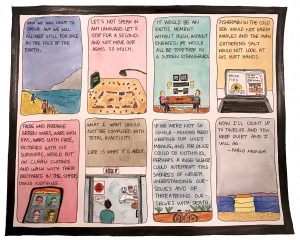 NOW WE WILL COUNT TO
TWELVE AND WE WILL
ALL KEEP STILL FOR ONCE
ON THE FACE OF THE
EARTH,
LET'S NOT SPEAK IN
ANY LANGUAGE; LET'S
STOP FOR A SECOND,
AND NOT MOVE OUR
ARMS SO MUCH.
IT WOULD BE AN
EXOTIC MOMENT
WITHOUT RUSH, WITHOUT
ENGINES; WE WOULD
ALL BE TOGETHER IN
A SUDDEN STRANGENESS.
FISHERMAN IN THE COLD
SEA WOULD NOT HARM
WHALES AND THE MAN
GATHERING SALT
WOULD NOT LOOK AT
HIS HURT HANDS.
THOSE WHO PREPARE
GREEN WARS, WARS WITH
GAS, WARS WITH FIRE,
VICTORIES WITH NO
SURVIVORS, WOULD PUT
ON CLEAN CLOTHES
AND WALK WITH THEIR
BROTHERS IN THE SHADE,
DOING NOTHING.
WHAT I WANT SHOULD
NOT BE CONFUSED WITH
TOTAL INACTIVITY.
LIFE IS WHAT IT IS ABOUT.
IF WE WERE NOT SO
SINGLE-MINDED ABOUT
KEEPING OUR LIVES
MOVING, AND FOR ONCE
COULD DO NOTHING,
PERHAPS A HUGE SILENCE
COULD INTERRUPT THIS
SADNESS OF NEVER
UNDERSTANDING OUR-
SELVES AND OF
THREATENING OUR-
SELVES WITH DEATH.
NOW I'LL COUNT UP
TO TWELVE AND YOU
KEEP QUIET AND I
WILL GO.
-PABLO NERUDA